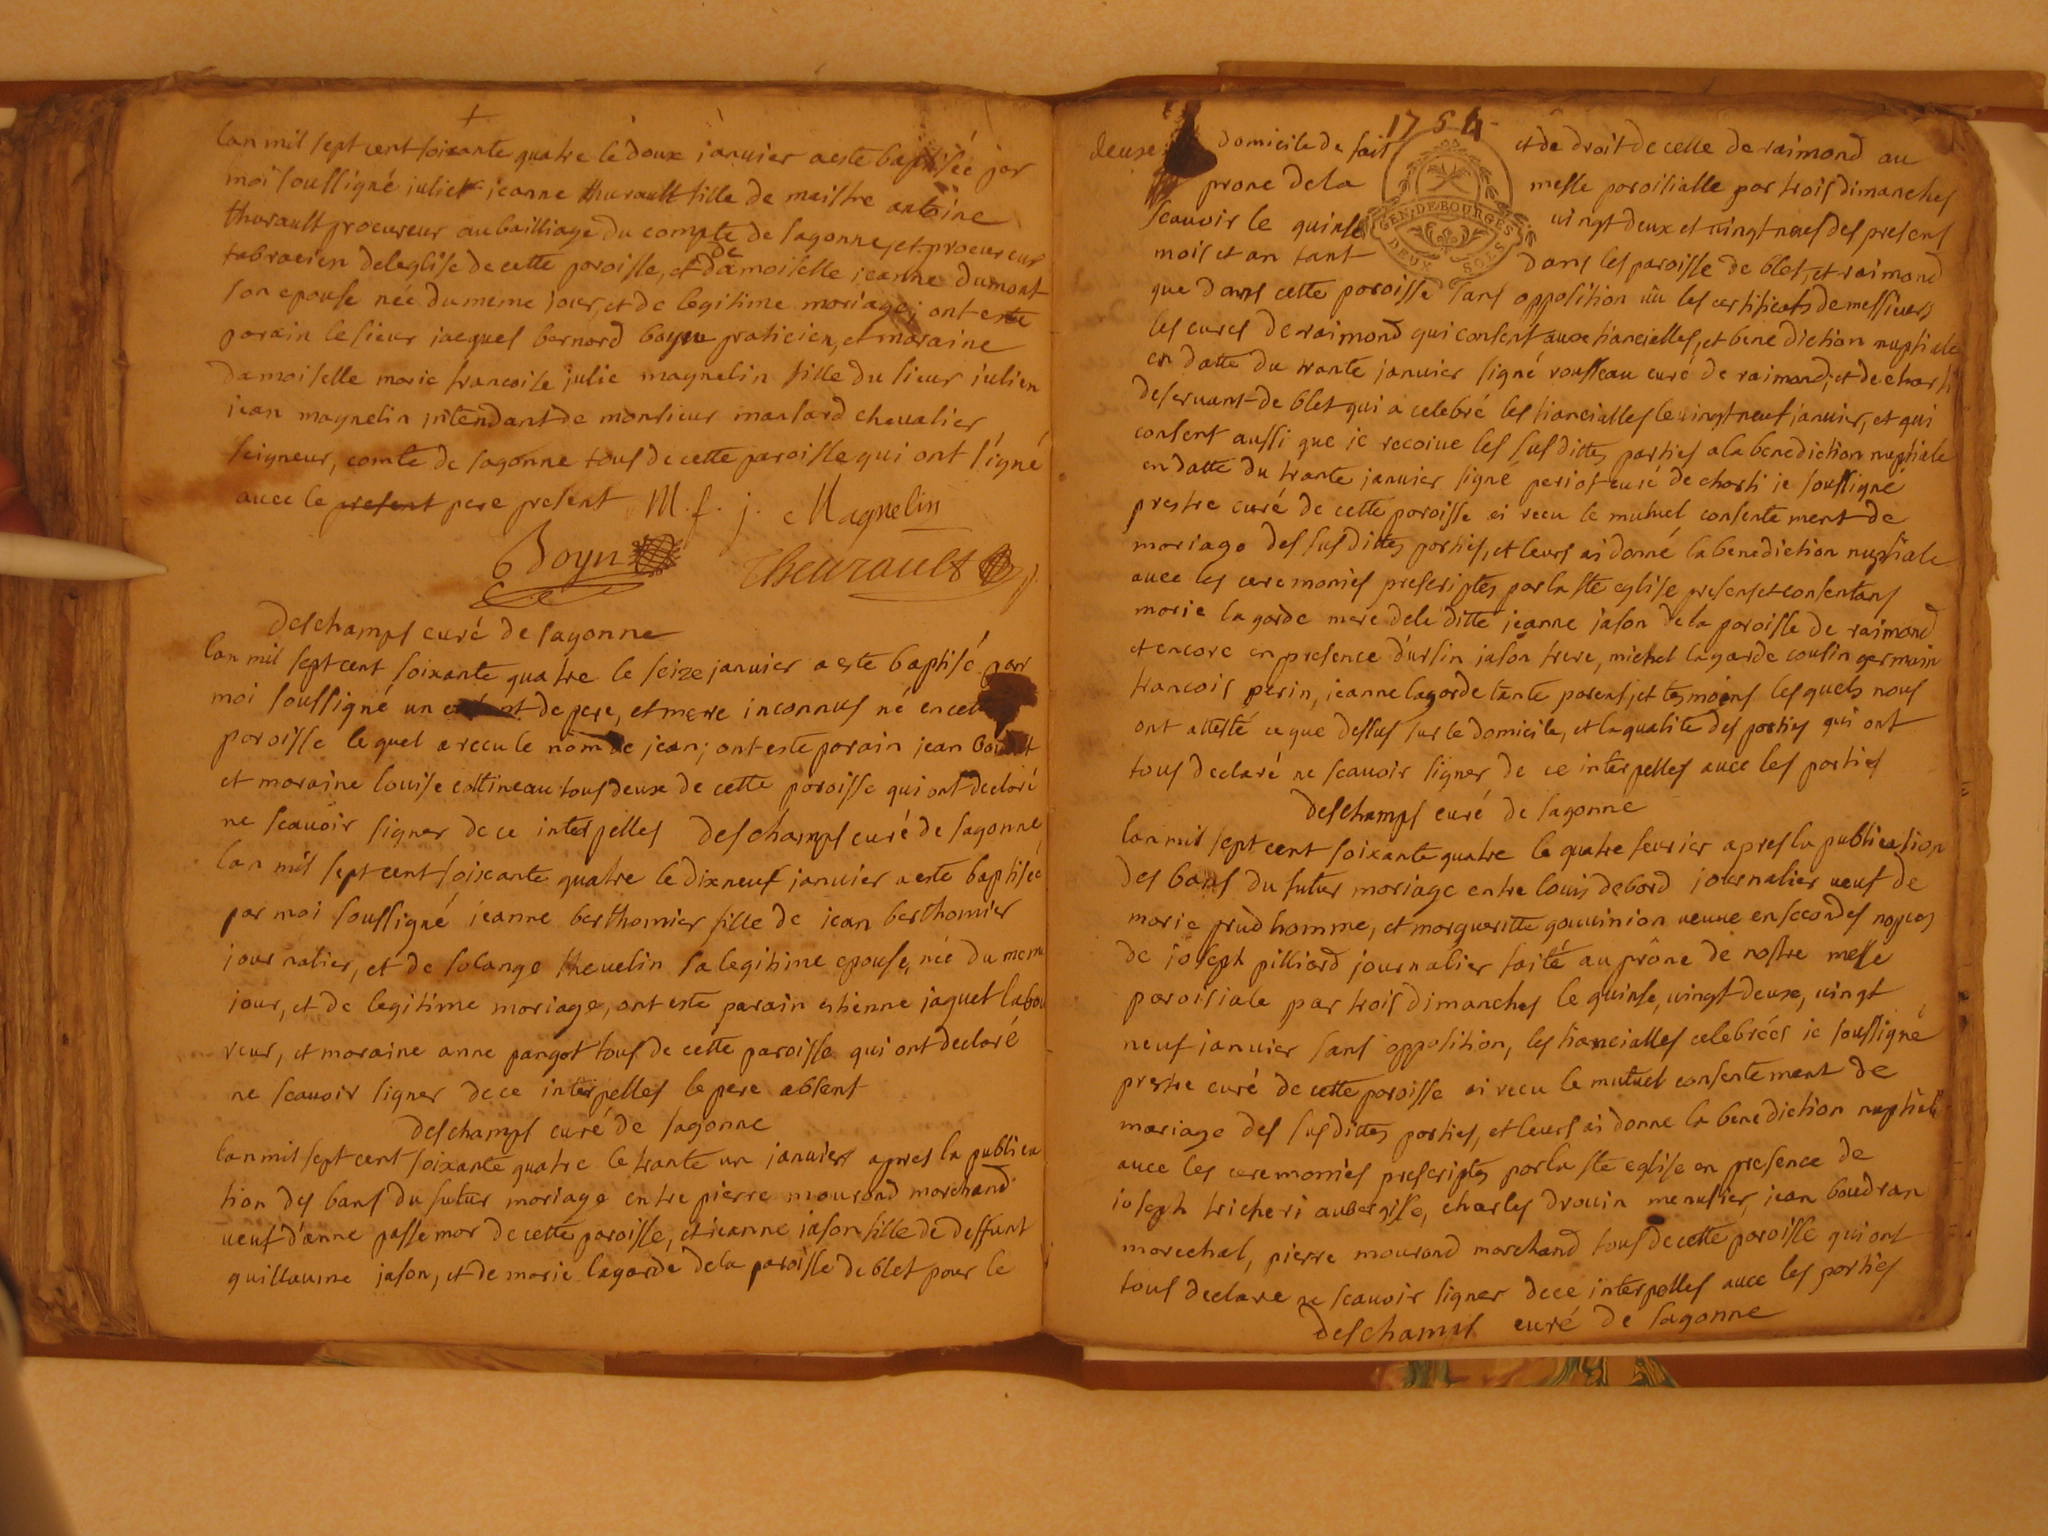 lan mil sept cent soixante quatre le doux janvier a este baptisée par
moi soussigné juliet jeanne thurault fille de maistre antoine
thurault procureur au bailliage du compte de sagonne, et procureur
fabracien de leglise de cette paroisse, et de damoiselle jeanne dumont
son epouse née du meme jour, et de legitime mariage; ont este
parain le sieur jacques bernard boyn praticien, et maraine
damoiselle marie francoise julie magnelin fille du sieur julien
jean magnelin intendant de monsieur mansard chevalier
seigneur, comte de sagonne tous de cette paroisse qui ont signé
avec le present pere present M. f. j. Magnelin
Boyn Theurault
deschamps curé de sagonne
lan mil sept cent soixante quatre le seize janvier a este baptisé par
moi soussigné un enfant de pere, et mere inconnus né en cet
paroisse lequel a recu le nom de jean; ont este parain jean
et maraine louise cottineau tous deux de cette paroisse qui ont declaré
ne scauoir signer de ce interpelles deschamps curé de sagonne
lan mil sept cent soixante quatre le dixneuf janvier a este baptisée
par moi soussigné jeanne berthomier fille de jean berthomier
journalier, et de solange theuelin sa legitime epouse, née du meme
jour, et de legitime mariage, ont este parain estienne jaquet labou
reur, et maraine anne pangot tous de cette paroisse qui ont declaré
ne scauoir signer de ce interpelles le pere absent
deschamps curé de sagonne
lan mil sept cent soixante quatre le trante un janvier apres la publica
tion des bans du futur mariage entre pierre mourand marchand
ueuf d'anne passemor de cette paroisse, et jeanne jason fille de deffunt
guillaume jason, et de marie lagarde de la paroisse de blet pour le
1764
deuse domicile de fait et de droit de celle de raimond au
prone de la messe paroisialle par trois dimanches
scauoir le quinse uingt deux et uingt neuf des presens
mois et an tant dans les paroisse de blet, et raimond
GEN. DE BOURGES
DEUX SOLS
que dans cette paroisse sans opposition uû les certificats de messieurs
les cures de raimond qui consent aux fiancielles, et benediction nuptiale
en datte du trante janvier signé rousseau curé de raimond; et de charli
deseruant de blet qui a celebré les fiancialles le uingt neuf januier, et qui
consent aussi que je recoiue les susdittes parties a la benediction nuptiale
en datte du trante januier signé periot curé de charli je soussigné
prestre curé de cette paroisse ai recu le mutuel consentement de
mariage des susdittes parties, et leurs ai donné la benediction nuptiale
auec les ceremonies prescriptes par la ste eglise presens et consentans
marie lagarde mere de la ditte jeanne jason de la paroisse de raimond
et encore en presence d'ursin jason frere, michel lagarde cousin germain
francois perin, jeanne lagarde tante parens, et tesmoins lesquels nous
ont attesté ce que dessus sur le domicile, et la qualite des parties qui ont
tous declaré ne scauoir signer de ce interpelles auec les parties
deschamps curé de sagonne
lan mil sept cent soixante quatre le quatre feurier apres la publication
des bans du futur mariage entre louis debord journalier ueuf de
marie prudhomme, et margueritte gouuinion ueuue en secondes nopces
de joseph pilliard journalier faite au prône de nostre messe
paroisiale par trois dimanches le quinse, uingt deuse, uingt
neuf januier sans opposition, les fiancialles celebrées je soussigné
prestre curé de cette paroisse ai recu le mutuel consentement de
mariage des susdittes parties, et leurs ai donne la benediction nuptiale
auec les ceremonies prescriptes par la ste eglise en presence de
joseph tricheri aubergisse, charles drouin menusier, jean boudran
marechal, pierre mourand marchand tous de cette paroisse qui ont
tous declare ne scauoir signer de ce interpelles auec les parties
deschamps curé de sagonne